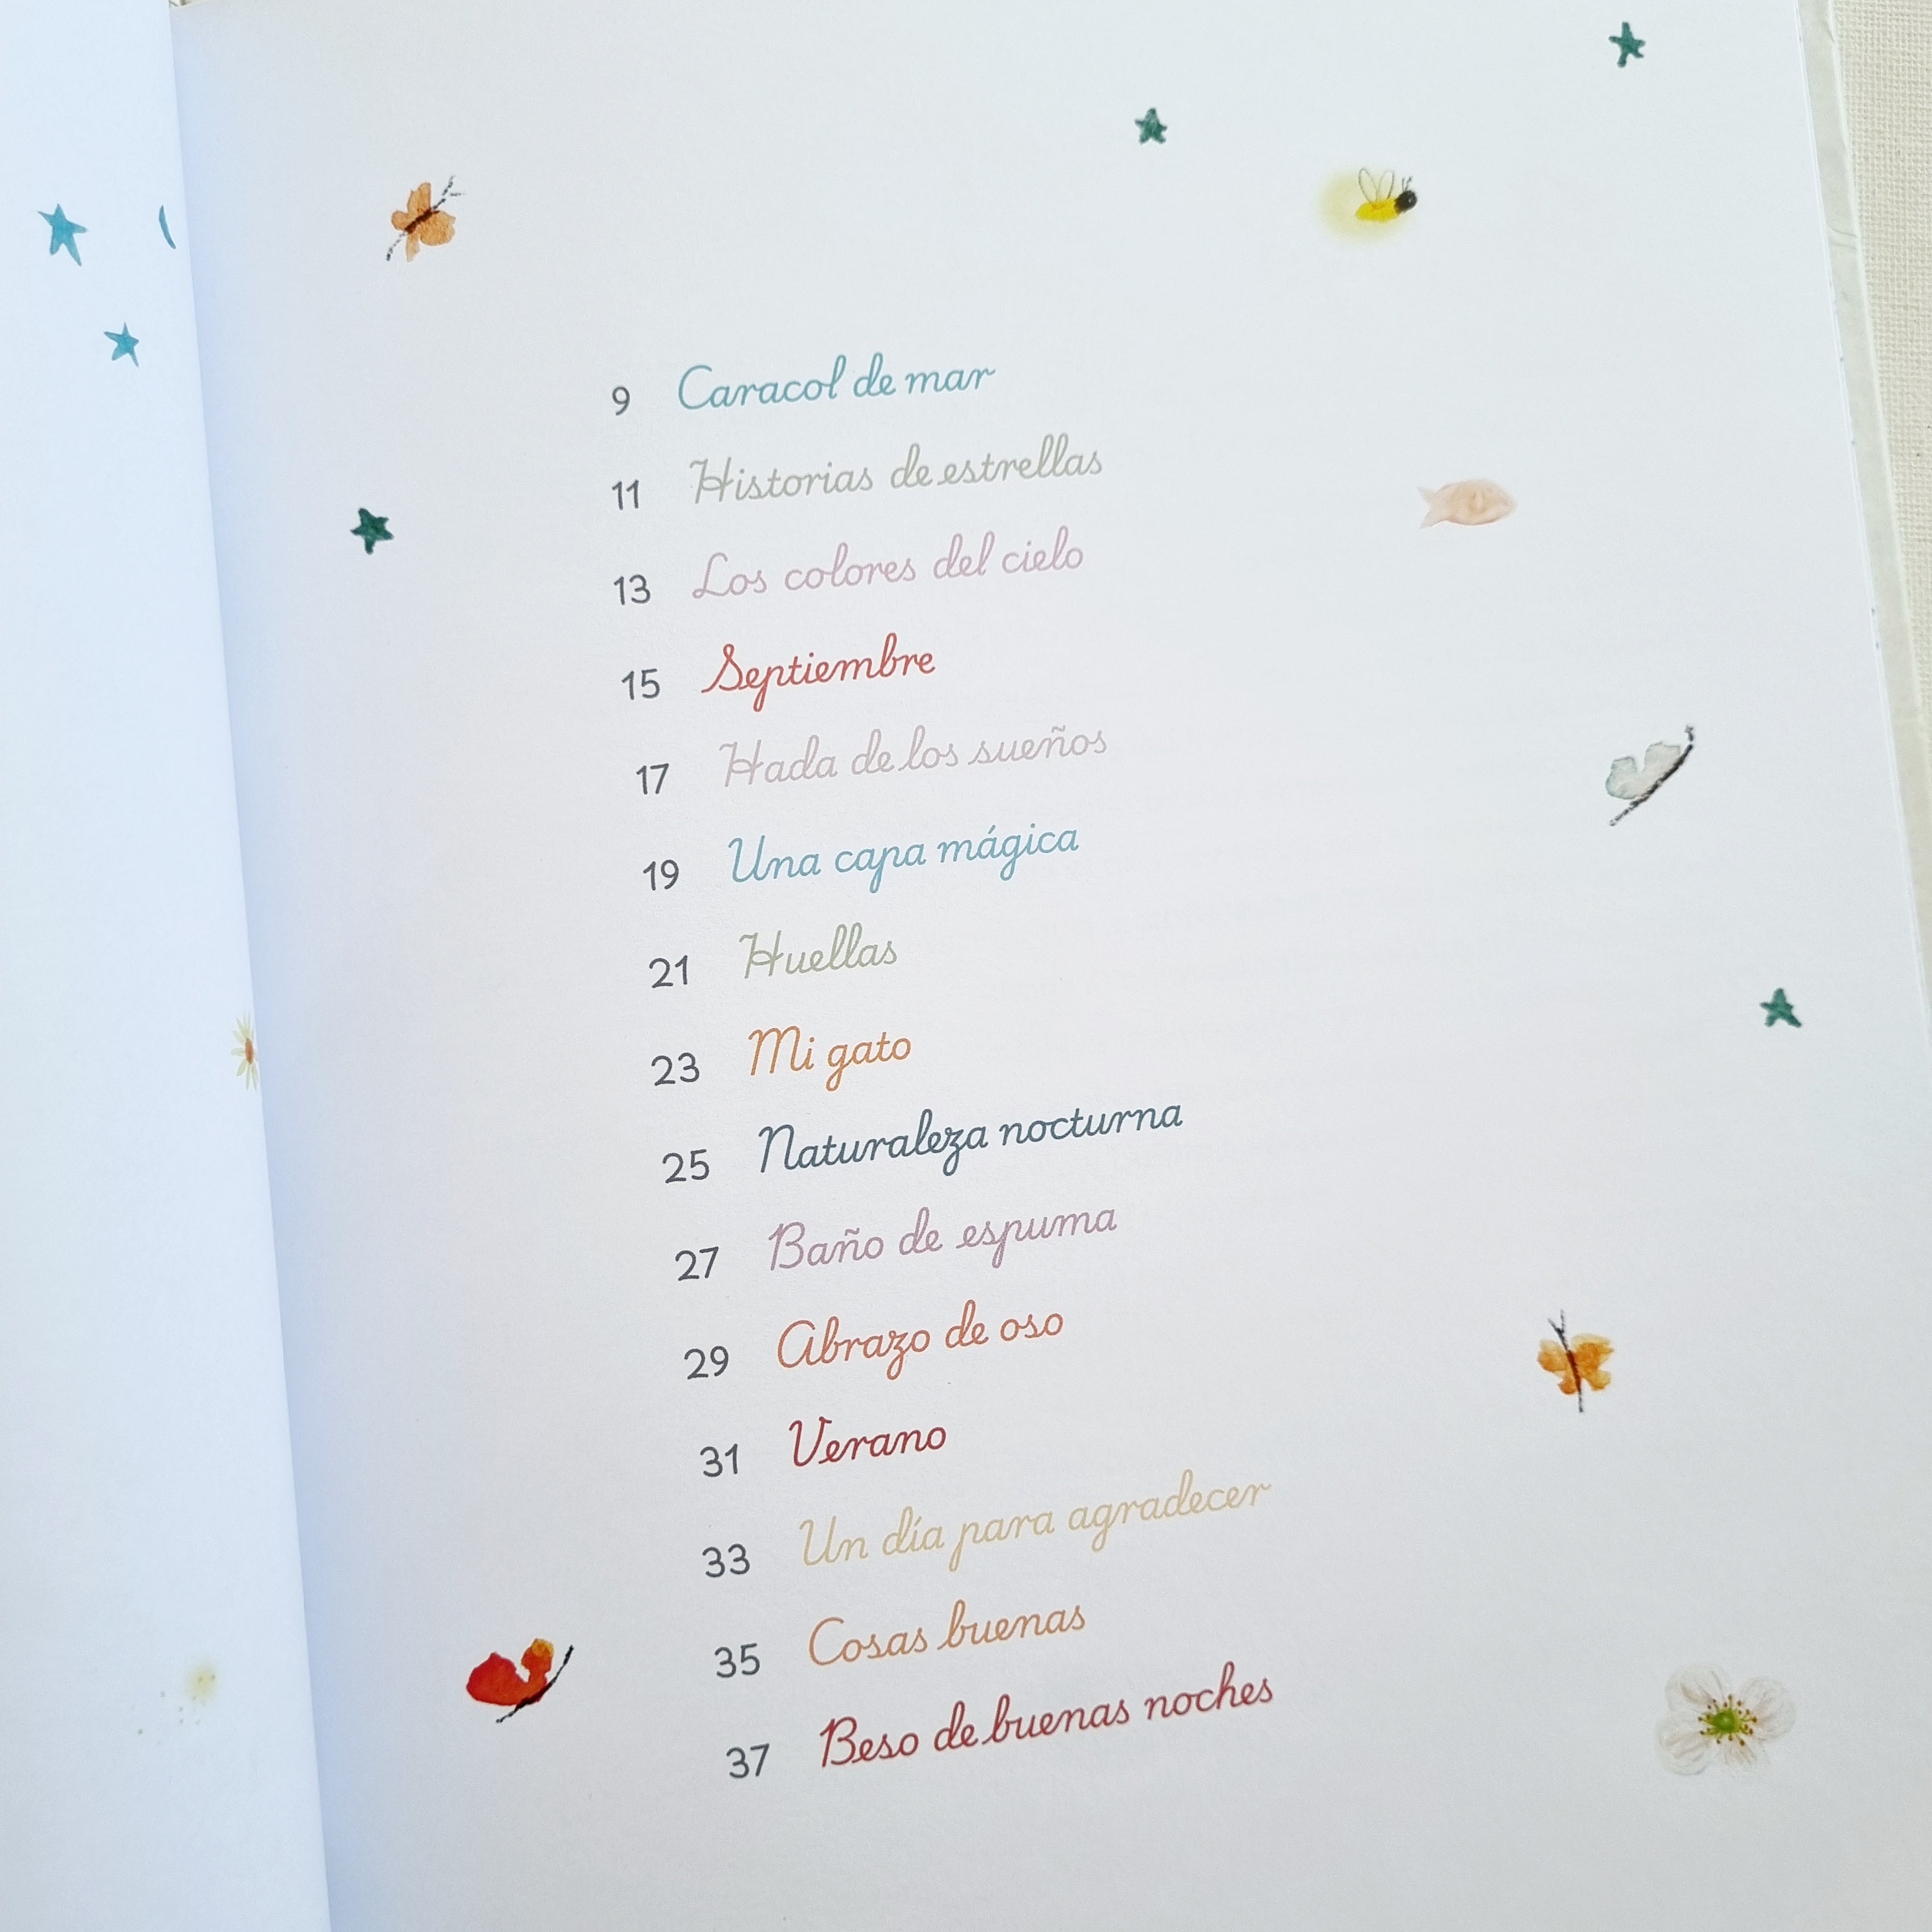 9 Caracol de mar
11 Historias de estrellas
13 Los colores del cielo
15 Septiembre
17 Hada de los sueños
19 Una capa mágica
21 Huellas
23 Mi gato
25 Naturaleza nocturna
27 Baño de espuma
29 Abrazo de oso
31 Verano
33 Un día para agradecer
35 Cosas buenas
37 Beso de buenas noches